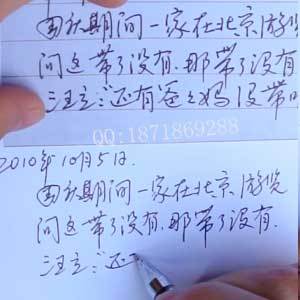 国庆期间一家在北京游览
问这带了没有.那带了没有
汪立:"还有爸之妈没带
QQ:1871869288
2010年10月5日.
国庆期间一家在北京游览
问这带了没有.那带了没有.
汪立:"还